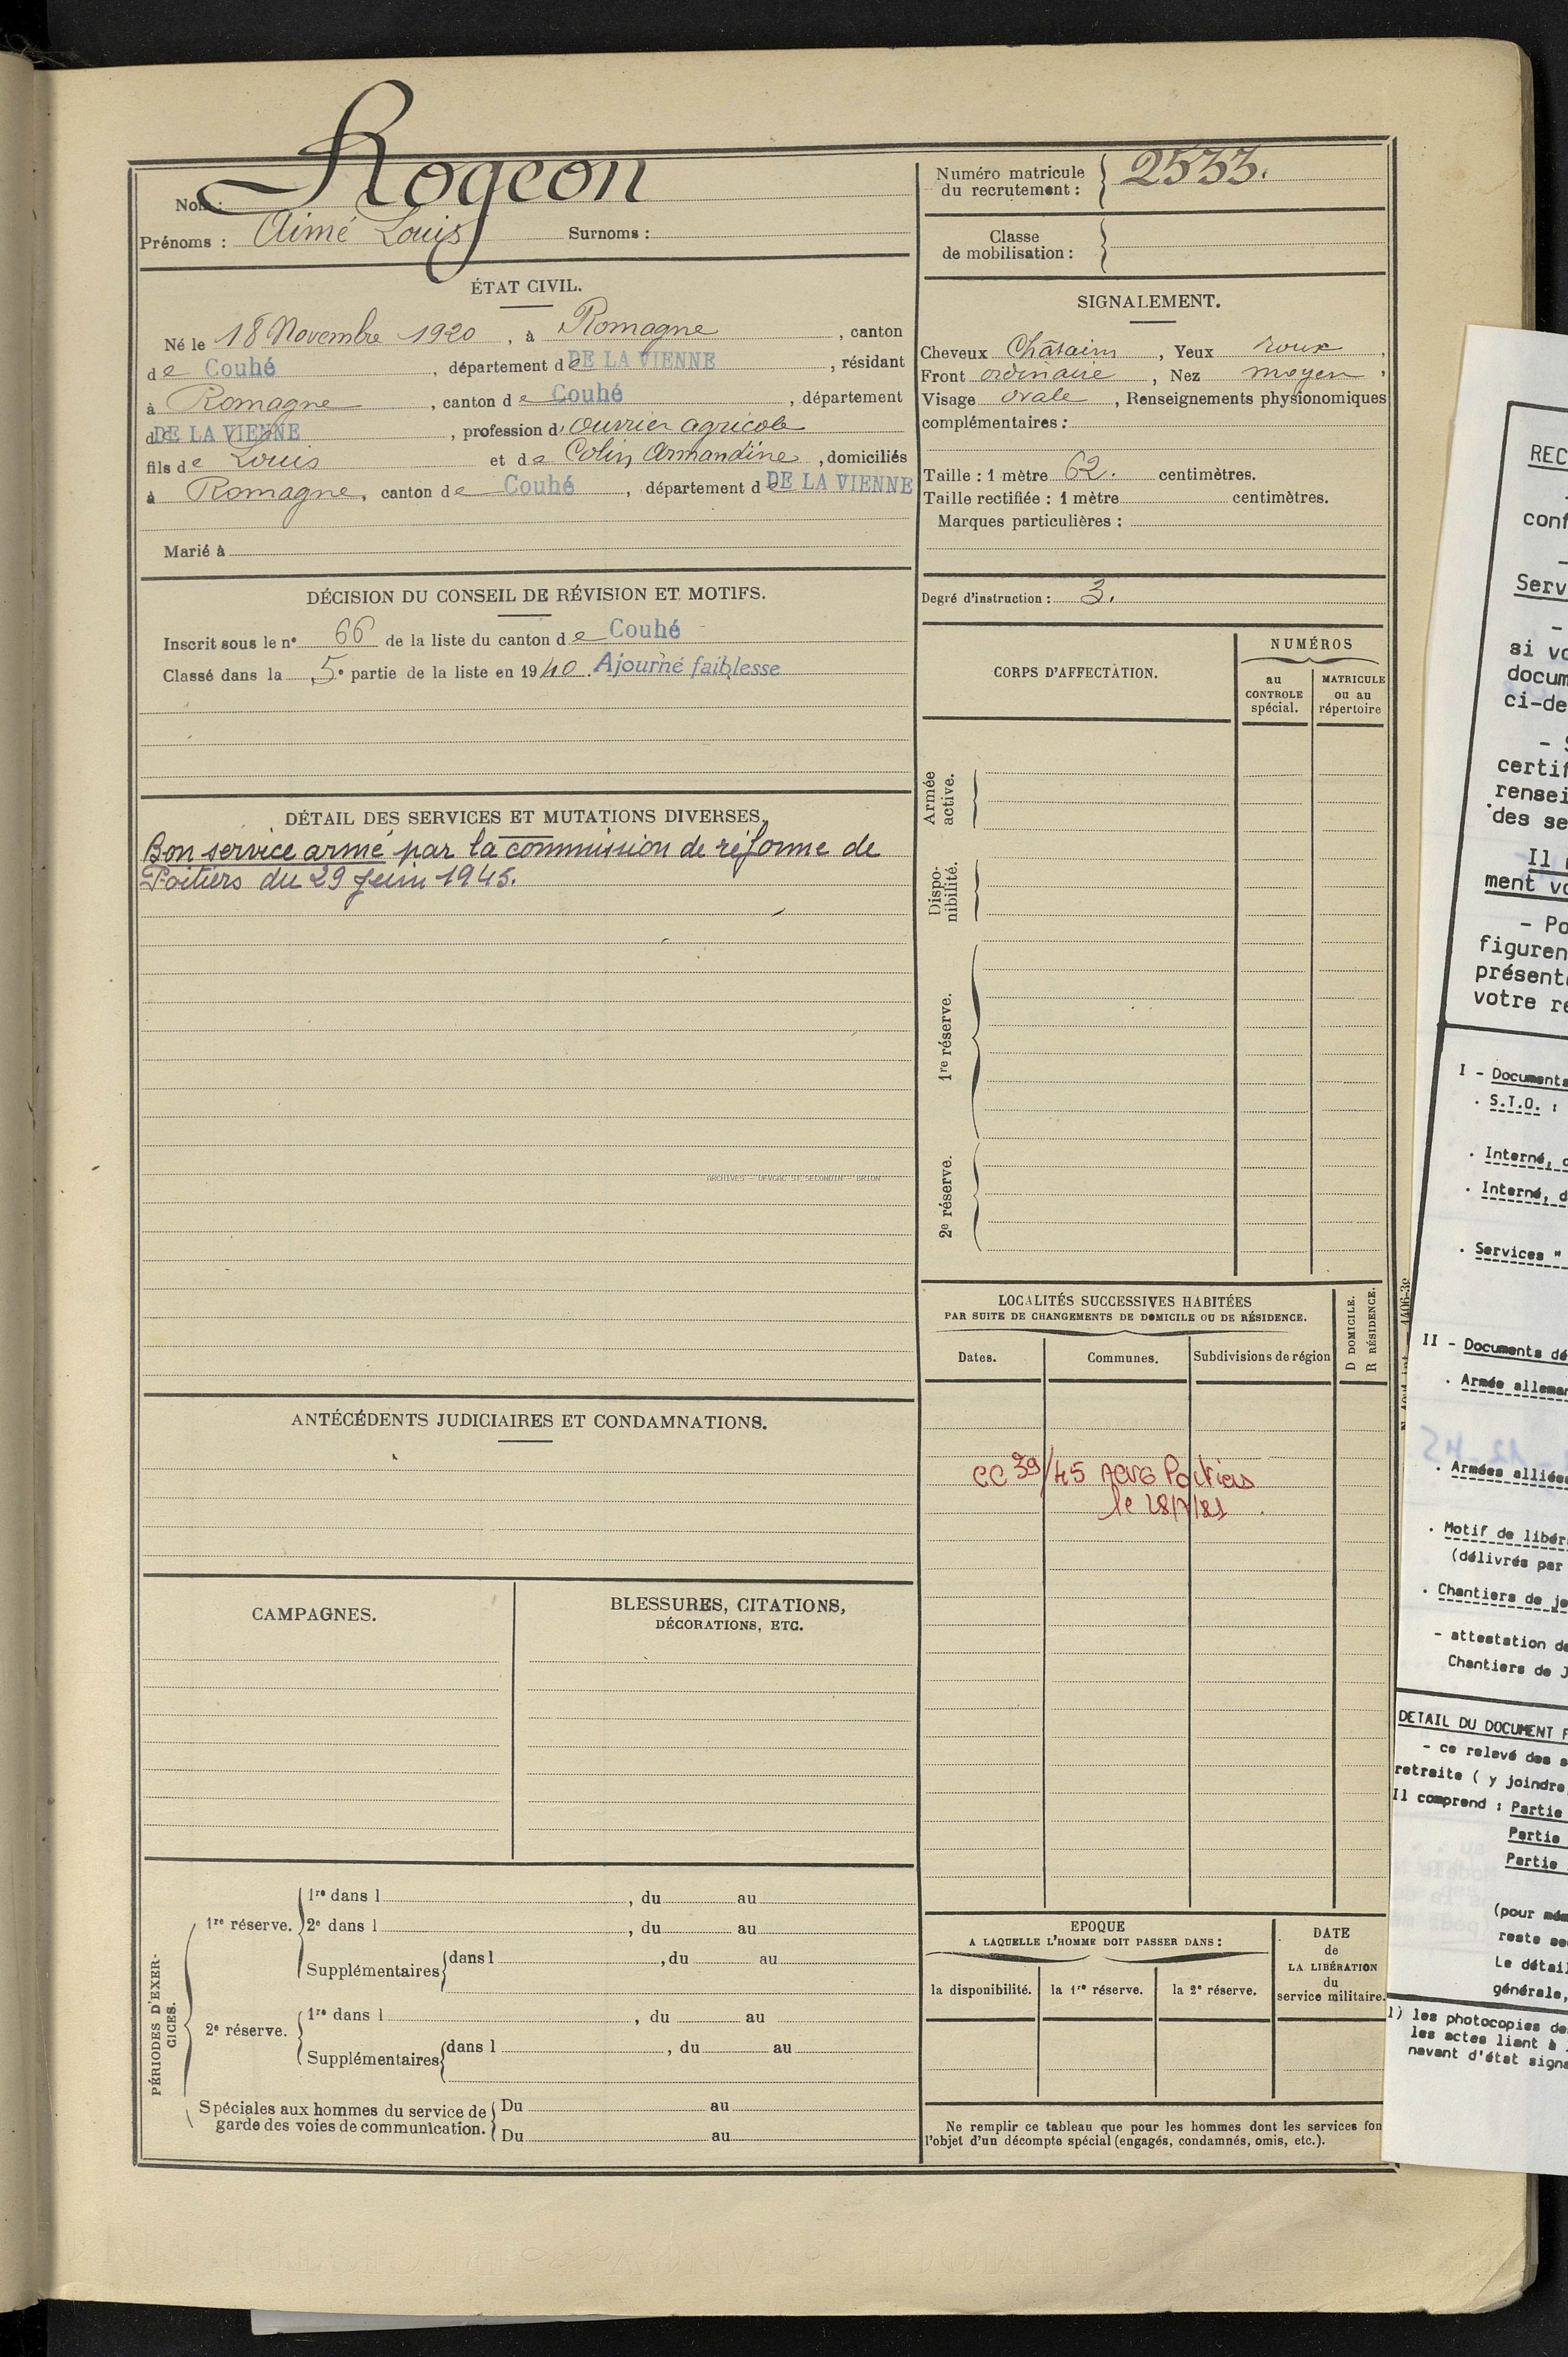 Nom : Rogeon
Prénoms : Aimé Louis Surnoms :
ÉTAT CIVIL.
Né le 18 Novembre 1920, à Romagne, canton
de Couhé, département de DE LA VIENNE, résidant
à Romagne, canton de Couhé, département
de DE LA VIENNE, profession d' ouvrier agricole
fils de Louis et de Colin Armandine, domiciliés
à Romagne, canton de Couhé, département de DE LA VIENNE
Marié à
DÉCISION DU CONSEIL DE RÉVISION ET MOTIFS.
Inscrit sous le n° 66 de la liste du canton de Couhé
Classé dans la 5e partie de la liste en 1940. Ajourné faiblesse
DÉTAIL DES SERVICES ET MUTATIONS DIVERSES.
Bon service armé par la commission de réforme de
Poitiers du 29 juin 1945.
ARCHIVES - ST SECONDIN - BRION
ANTÉCÉDENTS JUDICIAIRES ET CONDAMNATIONS.
CAMPAGNES.
BLESSURES, CITATIONS,
DÉCORATIONS, ETC.
PÉRIODES D'EXER-
CICES.
1re réserve.
1re dans l , du au
2e dans l , du au
Supplémentaires dans l , du au
2e réserve.
1re dans l , du au
Supplémentaires dans l , du au
Spéciales aux hommes du service de
garde des voies de communication.
Du au
Du au
Numéro matricule
du recrutement : 2533.
Classe
de mobilisation :
SIGNALEMENT.
Cheveux Châtains, Yeux roux,
Front ordinaire, Nez moyen,
Visage ovale, Renseignements physionomiques
complémentaires :
Taille : 1 mètre 62. centimètres.
Taille rectifiée : 1 mètre centimètres.
Marques particulières :
Degré d'instruction : 3.
CORPS D'AFFECTATION.
NUMÉROS
au
CONTROLE
spécial.
MATRICULE
ou au
répertoire
Armée
active.
Dispo-
nibilité.
1re réserve.
2e réserve.
LOCALITÉS SUCCESSIVES HABITÉES
PAR SUITE DE CHANGEMENTS DE DOMICILE OU DE RÉSIDENCE.
Dates.
Communes.
Subdivisions de région
D DOMICILE.
R RÉSIDENCE.
CC 39/45 Poitiers
EPOQUE
A LAQUELLE L'HOMME DOIT PASSER DANS :
la disponibilité.
la 1re réserve.
la 2e réserve.
DATE
de
LA LIBÉRATION
du
service militaire.
Ne remplir ce tableau que pour les hommes dont les services fon
l'objet d'un décompte spécial (engagés, condamnés, omis, etc.).
REC
conf
Serv
si vo
docum
ci-de
certif
rensei
des se
Il
ment vo
- Po
figuren
présent
votre re
I - Documents
. S.T.O. :
. Interné,
. Interné, d
. Services "
II - Documents dé
. Armée alleman
. Armées alliées
. Motif de libér
(délivrés par
. Chantiers de je
- attestation de
Chantiers de J
DETAIL DU DOCUMENT
- ce relevé des s
retraite ( y joindre
Il comprend : Partie
Partie
Partie
(pour mém
reste
Le détail
générale,
1) les photocopies de
les actes liant à
navant d'état signa